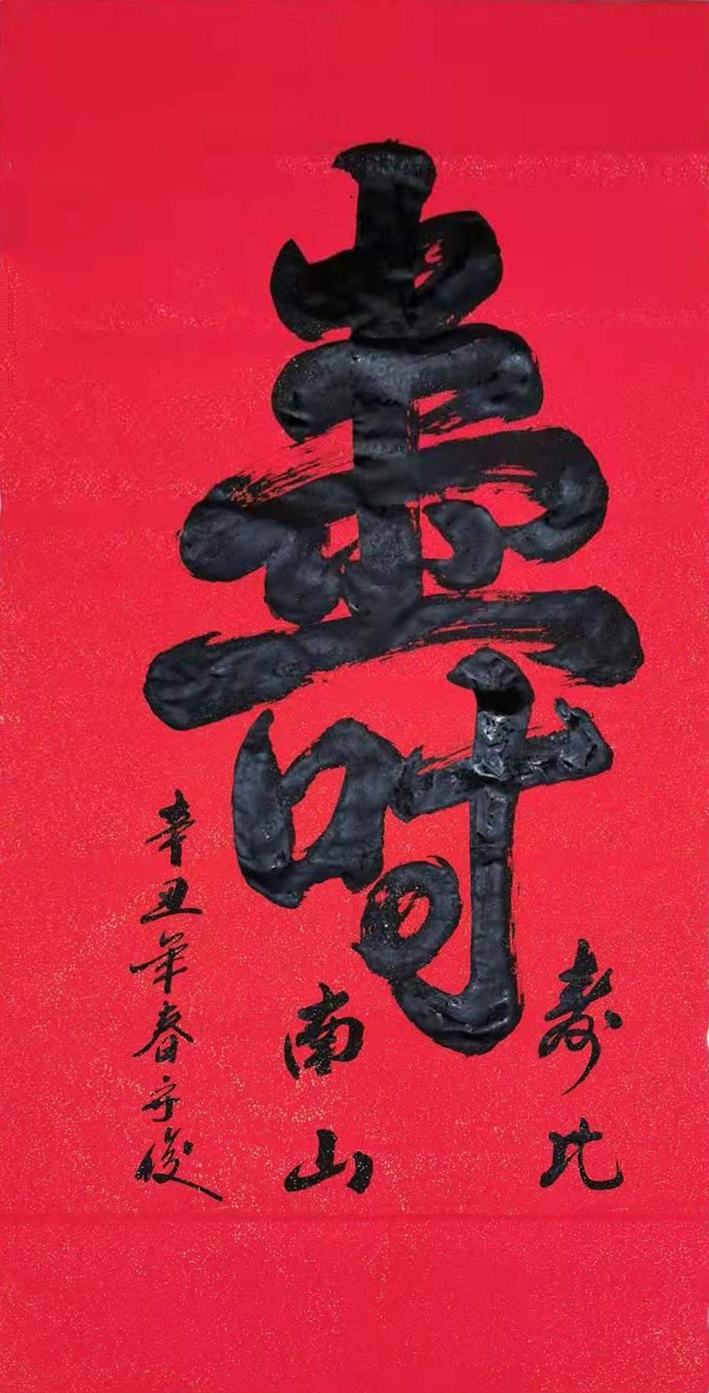 壽
寿比
南山
辛丑年春守俊